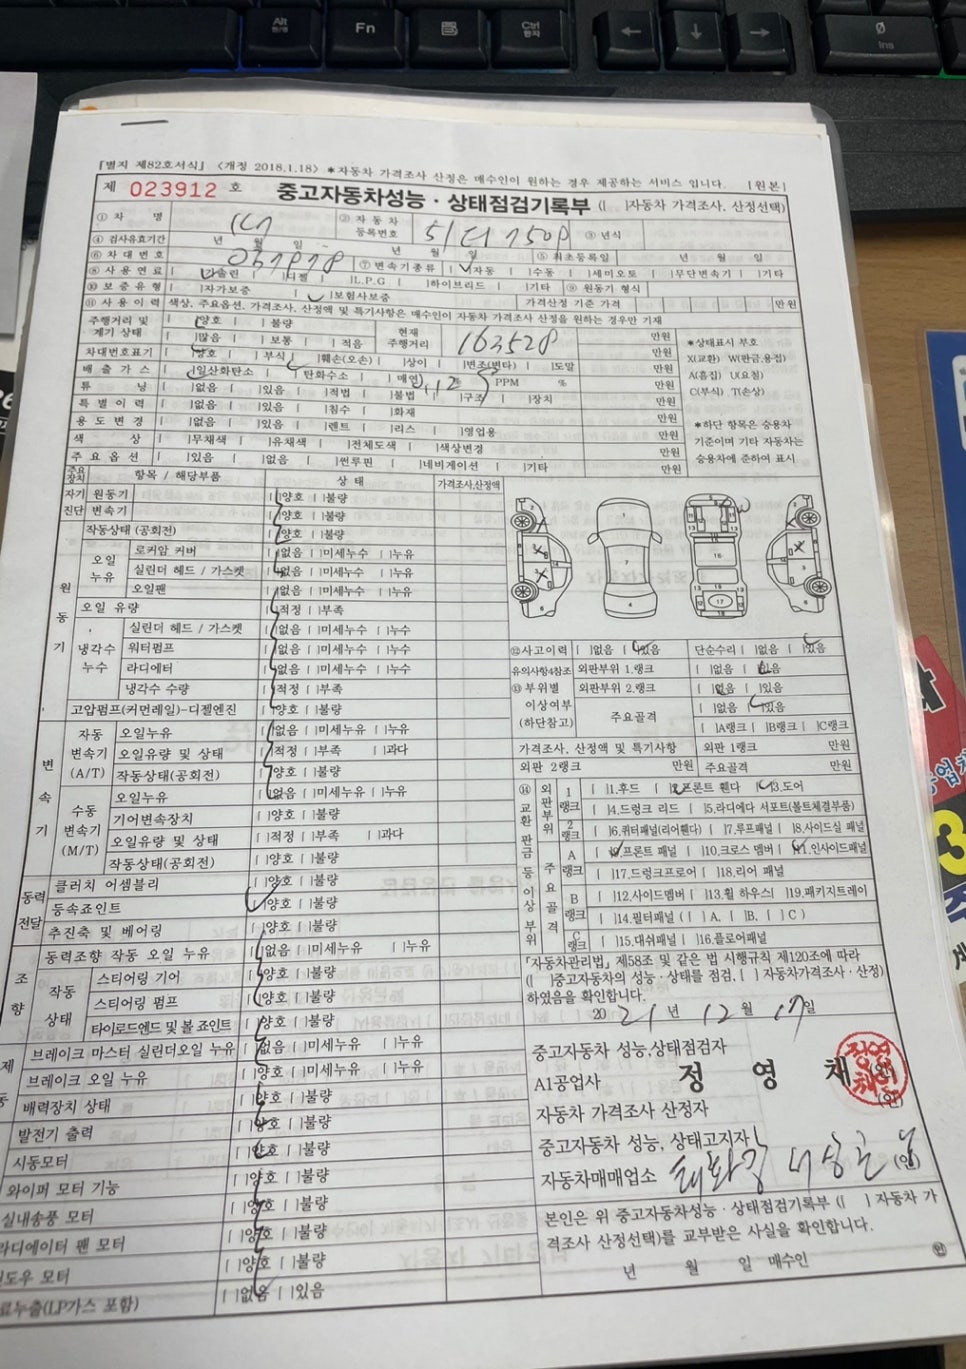 Alt
Fn
Ctrl
한자
Ins
「별지 제82호서식」 〈개정 2018.1.18〉 *자동차 가격조사 산정은 매수인이 원하는 경우 제공하는 서비스 입니다. [원본]
제 023912 호 중고자동차성능 · 상태점검기록부 ([ ]자동차 가격조사, 산정선택)
① 차 명 ② 자동차 등록번호 ③ 년식
④ 검사유효기간 년 월 일 ~ 년 월 일 ⑤ 최초등록일 년 월 일
⑥ 차대번호 ⑦ 변속기종류 [ ]자동 [ ]수동 [ ]세미오토 [ ]무단변속기 [ ]기타
⑧ 사용연료 [ ]가솔린 [ ]디젤 [ ]L.P.G [ ]하이브리드 [ ]기타 ⑨ 원동기 형식
⑩ 보증유형 [ ]자가보증 [ ]보험사보증 가격산정 기준 가격 만원
⑪ 사용이력 색상, 주요옵션, 가격조사, 산정액 및 특기사항은 매수인이 자동차 가격조사 산정을 원하는 경우만 기재
주행거리 및 계기 상태 [ ]양호 [ ]불량 현재 주행거리 163528 만원
[ ]많음 [ ]보통 [ ]적음 만원
차대번호표기 [ ]양호 [ ]부식 [ ]훼손(오손) [ ]상이 [ ]변조(변타) [ ]도말 만원
배출가스 [ ]일산화탄소 [ ]탄화수소 [ ]매연 % PPM % 만원
튜닝 [ ]없음 [ ]있음 [ ]적법 [ ]불법 [ ]구조 [ ]장치 만원
특별이력 [ ]없음 [ ]있음 [ ]침수 [ ]화재 만원
용도변경 [ ]없음 [ ]있음 [ ]렌트 [ ]리스 [ ]영업용 만원
색상 [ ]무채색 [ ]유채색 [ ]전체도색 [ ]색상변경 만원
주요옵션 [ ]있음 [ ]없음 [ ]썬루핀 [ ]네비게이션 [ ]기타 만원
*상태표시 부호
X(교환) W(판금,용접)
A(흠집) U(요철)
C(부식) T(손상)
*하단 항목은 승용차 기준이며 기타 자동차는 승용차에 준하여 표시
주요장치 항목 / 해당부품 상 태 가격조사,산정액
자기진단 원동기 [ ]양호 [ ]불량
변속기 [ ]양호 [ ]불량
원동기
작동상태 (공회전) [ ]양호 [ ]불량
오일누유 로커암 커버 [ ]없음 [ ]미세누수 [ ]누유
실린더 헤드 / 가스켓 [ ]없음 [ ]미세누수 [ ]누유
오일팬 [ ]없음 [ ]미세누수 [ ]누유
오일 유량 [ ]적정 [ ]부족
냉각수 누수 실린더 헤드 / 가스켓 [ ]없음 [ ]미세누수 [ ]누수
워터펌프 [ ]없음 [ ]미세누수 [ ]누수
라디에터 [ ]없음 [ ]미세누수 [ ]누수
냉각수 수량 [ ]적정 [ ]부족
고압펌프(커먼레일)-디젤엔진 [ ]양호 [ ]불량
변속기
자동변속기 (A/T) 오일누유 [ ]없음 [ ]미세누유 [ ]누유
오일유량 및 상태 [ ]적정 [ ]부족 [ ]과다
작동상태(공회전) [ ]양호 [ ]불량
수동변속기 (M/T) 오일누유 [ ]없음 [ ]미세누유 [ ]누유
기어변속장치 [ ]양호 [ ]불량
오일유량 및 상태 [ ]적정 [ ]부족 [ ]과다
작동상태(공회전) [ ]양호 [ ]불량
동력전달 클러치 어셈블리 [ ]양호 [ ]불량
등속죠인트 [ ]양호 [ ]불량
추진축 및 베어링 [ ]양호 [ ]불량
조향 동력조향 작동 오일 누유 [ ]없음 [ ]미세누유 [ ]누유
작동상태 스티어링 기어 [ ]양호 [ ]불량
스티어링 펌프 [ ]양호 [ ]불량
타이로드엔드 및 볼 죠인트 [ ]양호 [ ]불량
제동 브레이크 마스터 실린더오일 누유 [ ]없음 [ ]미세누유 [ ]누유
브레이크 오일 누유 [ ]양호 [ ]미세누유 [ ]누유
배력장치 상태 [ ]양호 [ ]불량
발전기 출력 [ ]양호 [ ]불량
시동모터 [ ]양호 [ ]불량
와이퍼 모터 기능 [ ]양호 [ ]불량
실내송풍 모터 [ ]양호 [ ]불량
라디에이터 팬 모터 [ ]양호 [ ]불량
도우 모터 [ ]양호 [ ]불량
료누출(LP가스 포함) [ ]없음 [ ]있음
⑫사고이력 [ ]없음 [ ]있음 단순수리 [ ]없음 [ ]있음
유의사항4참조 외판부위 1.랭크 [ ]없음 [ ]있음
⑬ 부위별 이상여부 (하단참고) 외판부위 2.랭크 [ ]없음 [ ]있음
주요골격 [ ]없음 [ ]있음
[ ]A랭크 [ ]B랭크 [ ]C랭크
가격조사, 산정액 및 특기사항 외판 1랭크 만원
외판 2랭크 만원 주요골격 만원
⑭ 교환 판금 등 이상 부위
외판부위 1랭크 [ ]1.후드 [ ]2.프론트 휀다 [ ]3.도어
[ ]4.드렁크 리드 [ ]5.라디에다 서포트(볼트체결부품)
2랭크 [ ]6.쿼터패널(리어휀다) [ ]7.루프패널 [ ]8.사이드실 패널
주요골격 A랭크 [ ]9.프론트 패널 [ ]10.크로스 멤버 [ ]11.인사이드패널
[ ]17.드렁크프로어 [ ]18.리어 패널
B랭크 [ ]12.사이드멤버 [ ]13.휠 하우스 [ ]19.패키지트레이
[ ]14.필터패널 ( [ ]A. [ ]B. [ ]C )
C랭크 [ ]15.대쉬패널 [ ]16.플로어패널
「자동차관리법」 제58조 및 같은 법 시행규칙 제120조에 따라
([ ]중고자동차의 성능 · 상태를 점검, [ ] 자동차가격조사 · 산정)
하였음을 확인합니다.
20 21 년 12 월 17 일
중고자동차 성능,상태점검자
A1공업사 정 영 채 (인)
자동차 가격조사 산정자 (인)
중고자동차 성능, 상태고지자
자동차매매업소 (인)
본인은 위 중고자동차성능 · 상태점검기록부 ([ ] 자동차 가
격조사 산정선택)를 교부받은 사실을 확인합니다.
년 월 일 매수인 ㊞